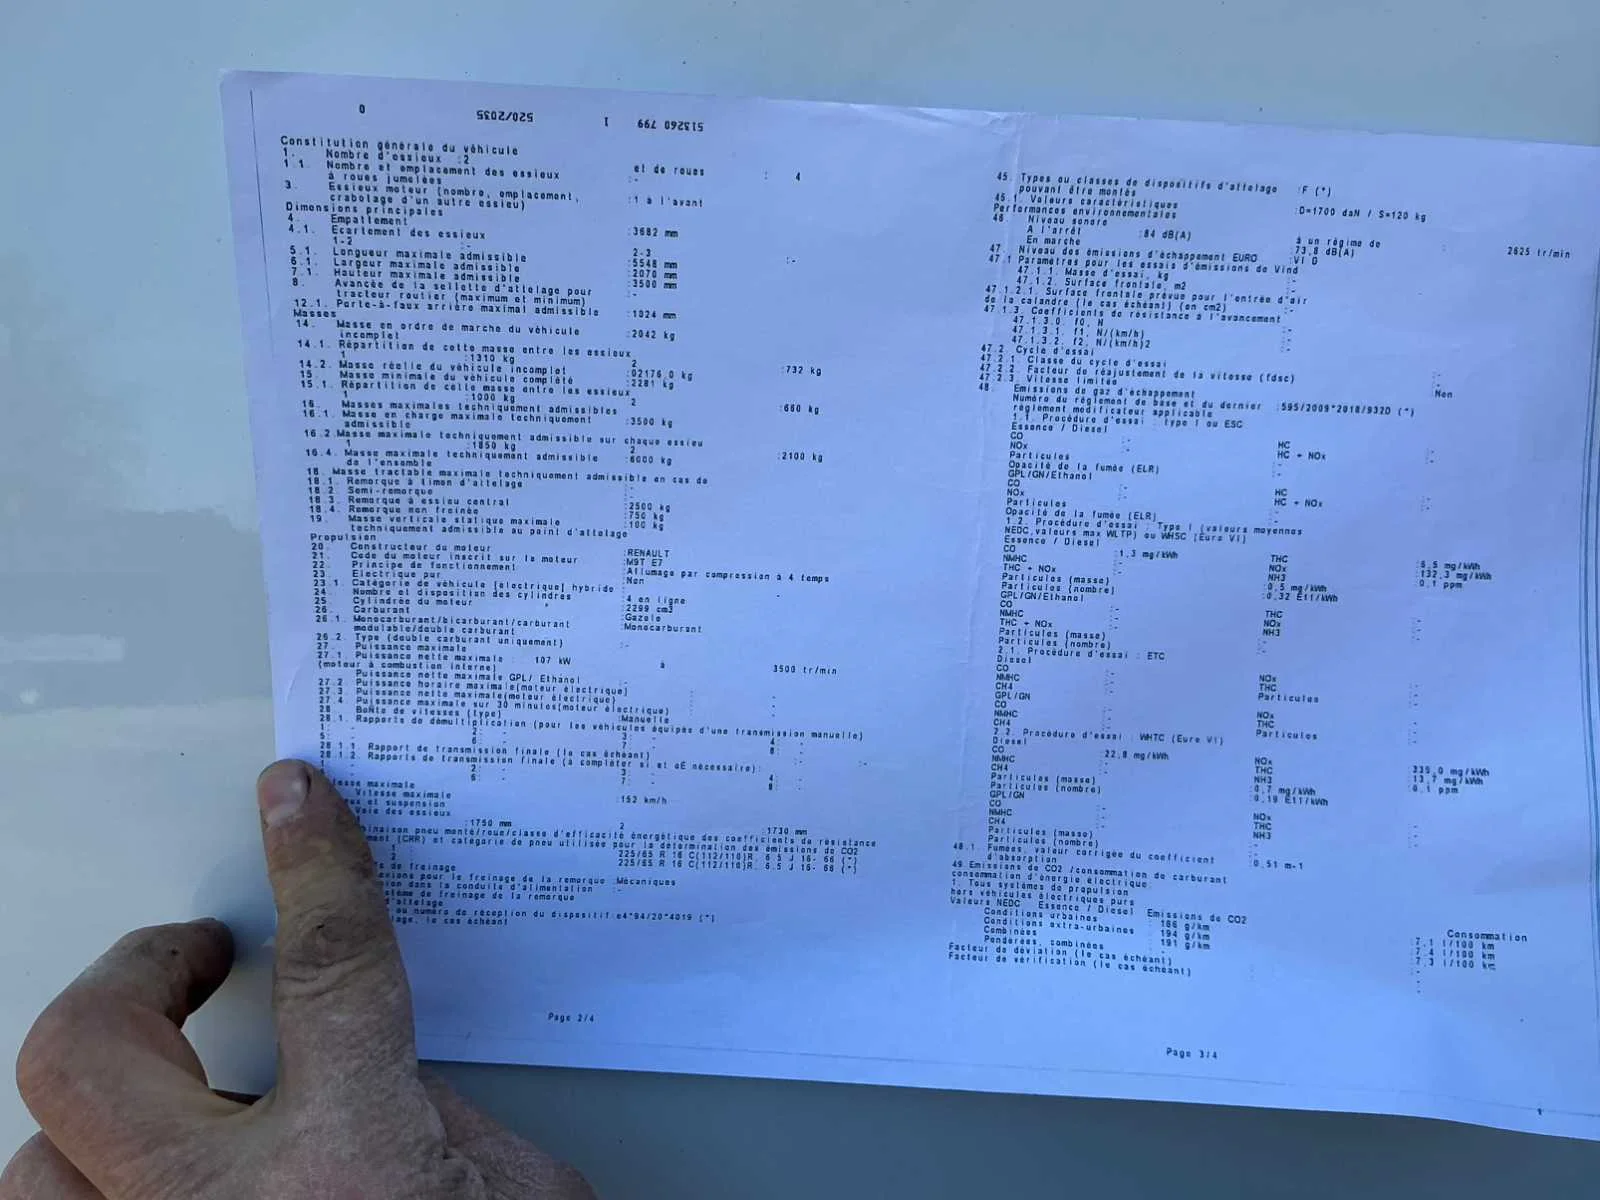 0 520/2035 1 513260 799
Constitution générale du véhicule
1. Nombre d'essieux :2 et de roues : 4
1.1. Nombre et emplacement des essieux
à roues jumelées :-
3. Essieux moteur (nombre, emplacement,
crabotage d'un autre essieu) :1 à l'avant
Dimensions principales
4. Empattement :3682 mm
4.1. Ecartement des essieux
1-2 :- 2-3 :-
5.1. Longueur maximale admissible :5548 mm
6.1. Largeur maximale admissible :2070 mm
7.1. Hauteur maximale admissible :3500 mm
8. Avancée de la sellette d'attelage pour
tracteur routier (maximum et minimum) :-
12.1. Porte-à-faux arrière maximal admissible :1024 mm
Masses
14. Masse en ordre de marche du véhicule
incomplet :2042 kg
14.1. Répartition de cette masse entre les essieux
1 :1310 kg 2 :732 kg
14.2. Masse réelle du véhicule incomplet :02176,0 kg
15. Masse minimale du véhicule complété :2281 kg
15.1. Répartition de cette masse entre les essieux
1 :1000 kg 2 :660 kg
16. Masses maximales techniquement admissibles
16.1. Masse en charge maximale techniquement
admissible :3500 kg
16.2.Masse maximale techniquement admissible sur chaque essieu
1 :1850 kg 2 :2100 kg
16.4. Masse maximale techniquement admissible
de l'ensemble :6000 kg
18. Masse tractable maximale techniquement admissible en cas de
18.1. Remorque à timon d'attelage :-
18.2. Semi-remorque :-
18.3. Remorque à essieu central :2500 kg
18.4. Remorque non freinée :750 kg
19. Masse verticale statique maximale
techniquement admissible au point d'attelage :100 kg
Propulsion
20. Constructeur du moteur :RENAULT
21. Code du moteur inscrit sur le moteur :M9T E7
22. Principe de fonctionnement :Allumage par compression à 4 temps
23. Electrique pur :Non
23.1. Catégorie de véhicule [électrique] hybride :
24. Nombre et disposition des cylindres :4 en ligne
25. Cylindrée du moteur :2299 cm3
26. Carburant :Gazole
26.1. Monocarburant/bicarburant/carburant
modulable/double carburant :Monocarburant
26.2. Type (double carburant uniquement) :-
27. Puissance maximale
27.1. Puissance nette maximale : 107 kW à 3500 tr/min
(moteur à combustion interne)
Puissance nette maximale GPL/ Ethanol
27.2. Puissance horaire maximale(moteur électrique)
27.3. Puissance nette maximale(moteur électrique)
27.4. Puissance maximale sur 30 minutes(moteur électrique)
28. Boîte de vitesses (type) :Manuelle
28.1. Rapports de démultiplication (pour les véhicules équipés d'une transmission manuelle)
1: - 2: - 3: - 4: -
5: - 6: - 7: - 8: -
28.1.1. Rapport de transmission finale (le cas échéant) :-
28.1.2. Rapports de transmission finale (à compléter si et où nécessaire):
2: - 3: - 4: -
6: - 7: - 8: -
maximale
Vitesse maximale :152 km/h
et suspension
Voie des essieux
:1750 mm 2 :1730 mm
pneu monté/roue/classe d'efficacité énergétique des coefficients de résistance
(CRR) et catégorie de pneu utilisée pour la détermination des émissions de CO2
225/65 R 16 C(112/110)R. 6.5 J 16- 66 (*)
2 225/65 R 16 C(112/110)R. 6.5 J 16- 66 (*)
de freinage
pour le freinage de la remorque :Mécaniques
dans la conduite d'alimentation :-
de freinage de la remorque
d'attelage
ou numéro de réception du dispositif:e4*94/20*4019 (*)
le cas échéant
Page 2/4
45. Types ou classes de dispositifs d'attelage
pouvant être montés :F (*)
45.1. Valeurs caractéristiques :D=1700 daN / S=120 kg
Performances environnementales
46. Niveau sonore
A l'arrêt :84 dB(A) à un régime de : 2625 tr/min
En marche :73,8 dB(A)
47. Niveau des émissions d'échappement EURO :VI D
47.1 Paramètres pour les essais d'émissions de Vind
47.1.1. Masse d'essai, kg :-
47.1.2. Surface frontale, m2 :-
47.1.2.1. Surface frontale prévue pour l'entrée d'air
de la calandre (le cas échéant) (en cm2) :-
47.1.3. Coefficients de résistance à l'avancement
47.1.3.0. f0, N :-
47.1.3.1. f1, N/(km/h) :-
47.1.3.2. f2, N/(km/h)2 :-
47.2. Cycle d'essai
47.2.1. Classe du cycle d'essai :-
47.2.2. Facteur de réajustement de la vitesse (fdsc) :-
47.2.3. Vitesse limitée :Non
48. Emissions de gaz d'échappement
Numéro du règlement de base et du dernier
règlement modificateur applicable :595/2009*2018/932D (*)
1.1. Procédure d'essai : type I ou ESC
Essence / Diesel
CO :- HC :-
NOx :- HC + NOx :-
Particules :-
Opacité de la fumée (ELR) :-
GPL/GN/Ethanol
CO :- HC :-
NOx :- HC + NOx :-
Particules :-
Opacité de la fumée (ELR) :-
1.2. Procédure d'essai : Type I (valeurs moyennes
NEDC,valeurs max WLTP) ou WHSC (Euro VI)
Essence / Diesel
CO :1,3 mg/kWh THC :6,5 mg/kWh
NMHC :- NOx :132,3 mg/kWh
THC + NOx :- NH3 :0,1 ppm
Particules (masse) :0,5 mg/kWh
Particules (nombre) :0,32 E11/kWh
GPL/GN/Ethanol
CO :- THC :-
NMHC :- NOx :-
THC + NOx :- NH3 :-
Particules (masse) :-
Particules (nombre) :-
2.1. Procédure d'essai : ETC
Diesel
CO :- NOx :-
NMHC :- THC :-
CH4 :- Particules :-
GPL/GN
CO :- NOx :-
NMHC :- THC :-
CH4 :- Particules :-
2.2. Procédure d'essai : WHTC (Euro VI)
Diesel
CO :22,8 mg/kWh NOx :335,0 mg/kWh
NMHC :- THC :13,7 mg/kWh
CH4 :- NH3 :0,1 ppm
Particules (masse) :0,7 mg/kWh
Particules (nombre) :0,19 E11/kWh
GPL/GN
CO :- NOx :-
NMHC :- THC :-
CH4 :- NH3 :-
Particules (masse) :-
Particules (nombre) :-
48.1. Fumées, valeur corrigée du coefficient
d'absorption :0,51 m-1
49.Emissions de CO2 /consommation de carburant
consommation d'énergie électrique:
1. Tous systèmes de propulsion
hors véhicules électriques purs
Valeurs NEDC Essence / Diesel Emissions de CO2 Consommation
Conditions urbaines : 186 g/km :7,1 l/100 km
Conditions extra-urbaines : 194 g/km :7,4 l/100 km
Combinées : 191 g/km :7,3 l/100 km
Pondérées, combinées :-
Facteur de déviation (le cas échéant) :-
Facteur de vérification (le cas échéant) :-
Page 3/4